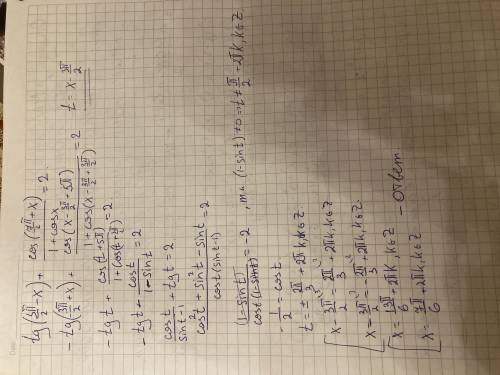 tg(3π/2 - x) + cos(7π/2 + x)/(1 + cosx) = 2
-tg(x - 3π/2) + cos(x - 3π/2 + 5π)/(1 + cos(x - 3π/2 + 3π/2)) = 2    t = x - 3π/2
-tg t + cos(t + 5π)/(1 + cos(t + 3π/2)) = 2
-tg t - cos t/(1 - sin t) = 2
cos t/(sin t - 1) + tg t = 2
(cos²t + sin²t - sin t)/(cos t (sin t - 1)) = 2
(1 - sin t)/(cos t (1 - sin t)) = -2, т.к. (1 - sin t) ≠ 0 => t ≠ π/2 + 2πk, k ∈ Z.
-1/2 = cos t
t = ± 2π/3 + 2πk, k ∈ Z.
x - 3π/2 = 2π/3 + 2πk, k ∈ Z
x - 3π/2 = -2π/3 + 2πk, k ∈ Z.
x = 13π/6 + 2πk, k ∈ Z
x = 7π/6 + 2πk, k ∈ Z. - Ответ